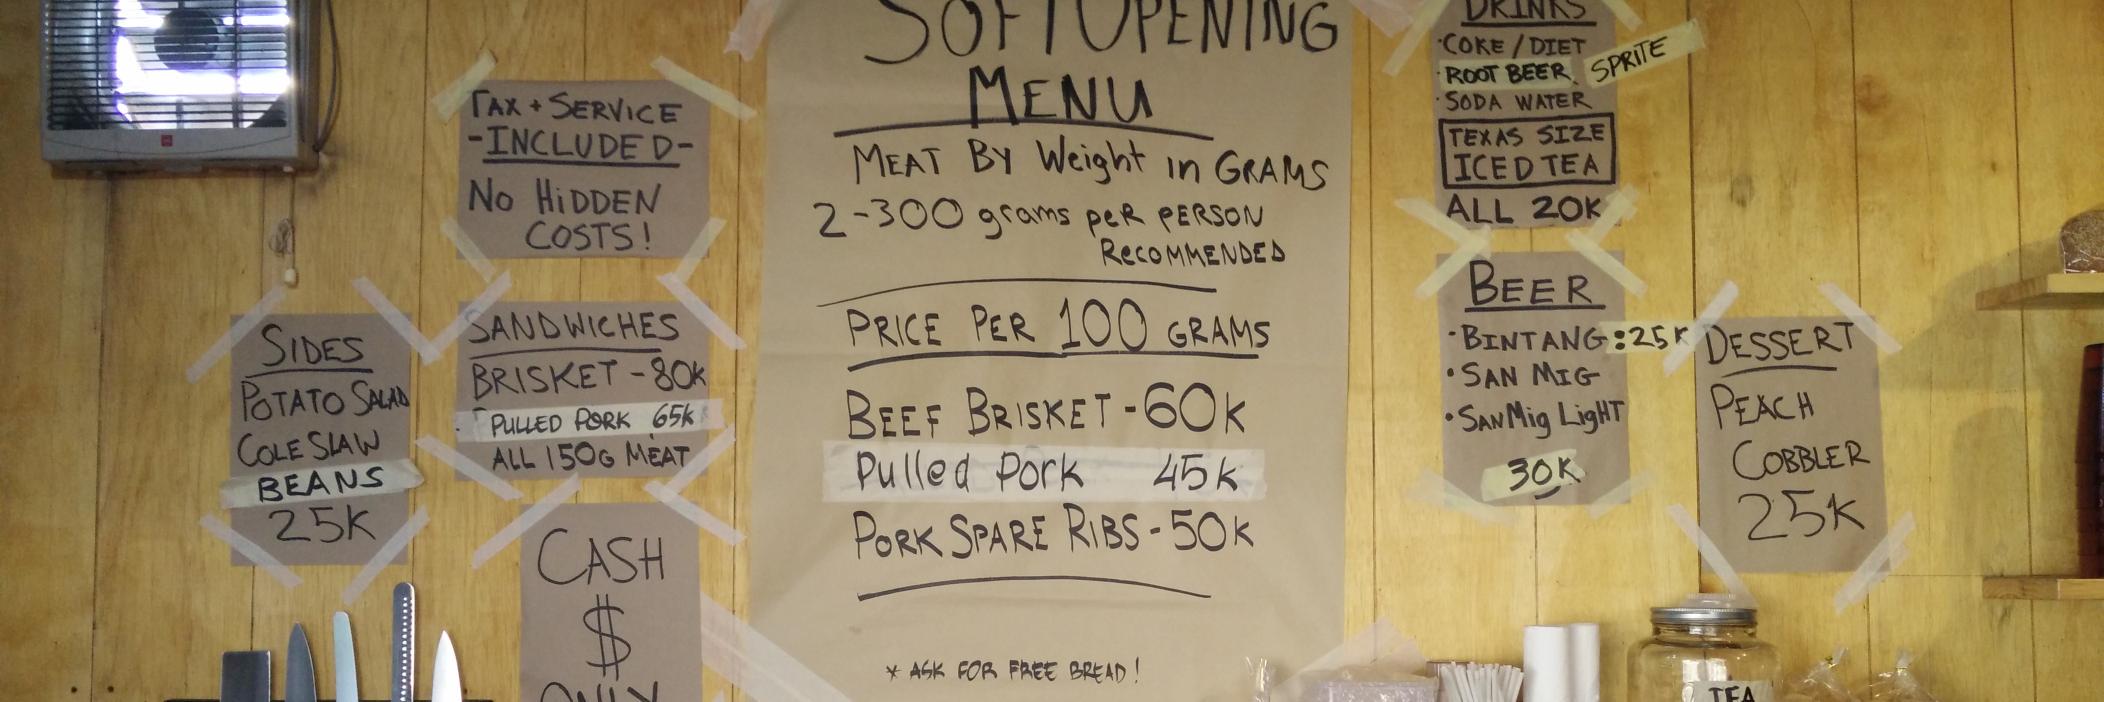 TAX + SERVICE
-INCLUDED-
NO HIDDEN
COSTS!
SIDES
POTATO SALAD
COLE SLAW
BEANS
25K
SANDWICHES
BRISKET - 80K
PULLED PORK 65K
ALL 150G MEAT
CASH
$
ONLY
SOFT OPENING
MENU
MEAT BY Weight in GRAMS
2-300 grams peR PERSON
RECOMMENDED
PRICE PER 100 GRAMS
BEEF BRISKET - 60K
Pulled Pork 45K
PORK SPARE RIBS - 50K
* ASK FOR FREE BREAD!
DRINKS
·COKE / DIET
·ROOT BEER. SPRITE
·SODA WATER
TEXAS SIZE
ICED TEA
ALL 20K
BEER
·BINTANG :25K
·SAN MIG
·SAN Mig LigHT
30K
DESSERT
PEACH
COBBLER
25K
TEA